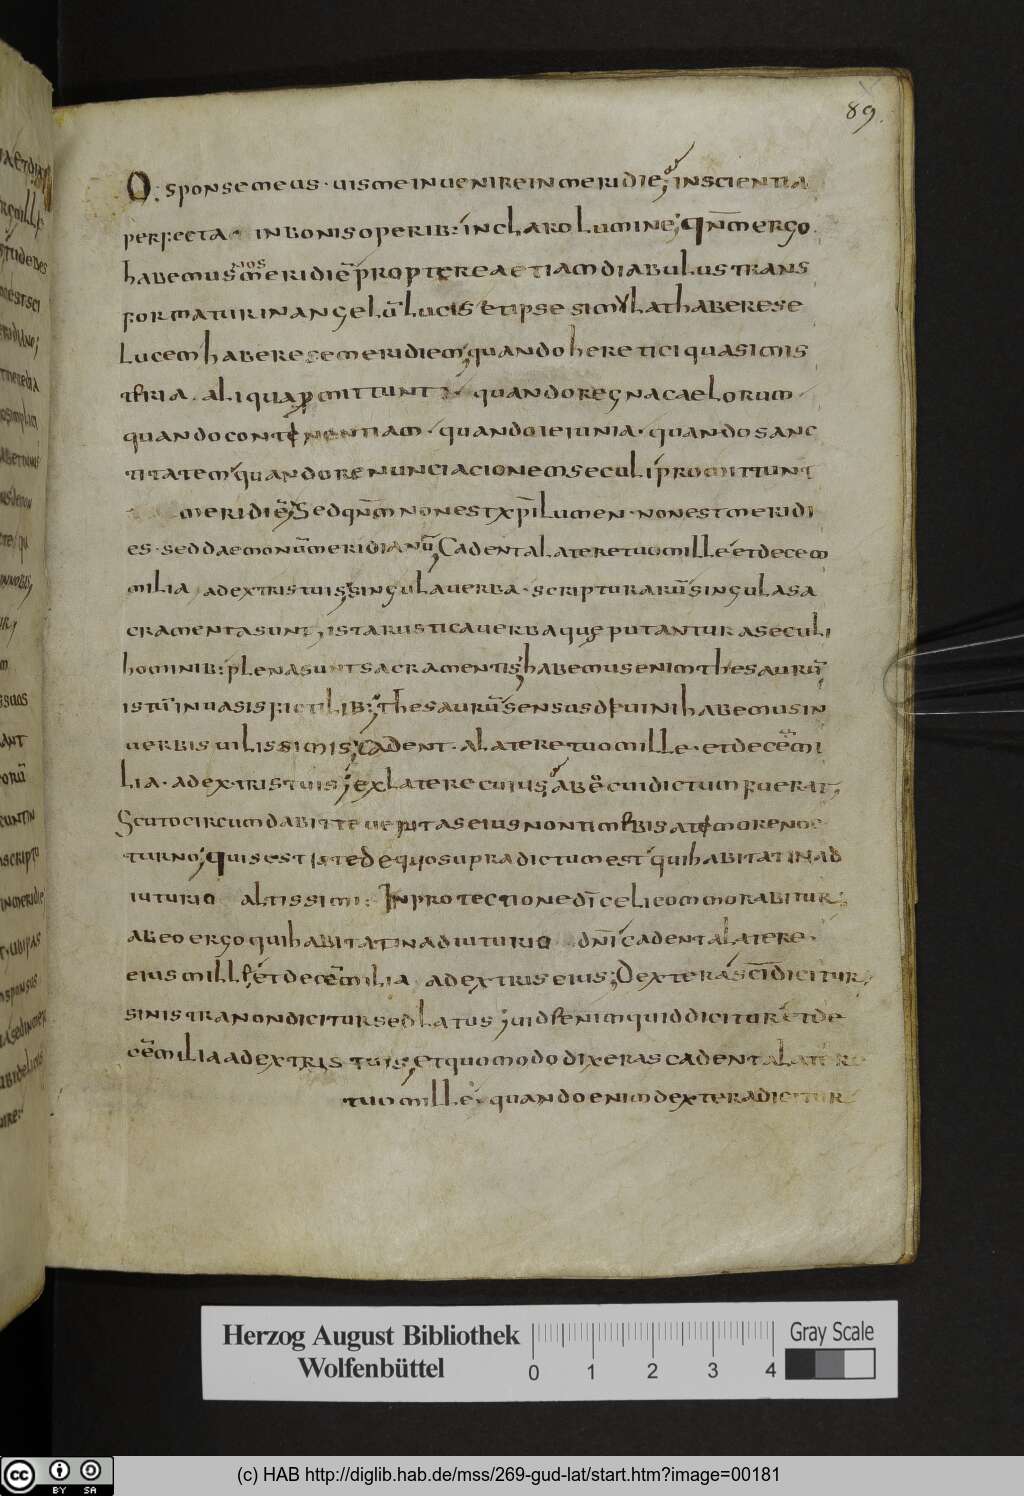 89.
O sponse meus · uis me inuenire in meridie; in scientia
perfecta · in bonis operib: in claro lumine; qnm ergo
habemus nos meridiē propterea etiam diabulus trans
formatur in angelū lucis et ipse simulat habere se
lucem habere se meridiem; quando heretici quasi mis
teria aliqua pmittunt · quando regna caelorum ·
quando continentiam · quando ieiunia · quando sanc
titatem quando renunciacionem seculi promittunt
meridiē; Sed qnm non est xpi lumen · non est meridi
es · sed daemoniū meridianū; Cadent a latere tuo mille et decem
milia a dextris tuis; singula uerba · scripturarū singula sa
cramenta sunt; ista rustica uerba que putantur a seculi
hominib: plena sunt sacramentis; habemus enim thesaurū
istū in uasis fictilib; thesaurū sensus diuini habemus in
uerbis uilissimis; Cadent · a latere tuo mille · et decē mi
lia · a dextris tuis; ex latere cuius ab eo cui dictum fuerat;
Scuto circumdabit te ueritas eius non timebis a timore noc
turno; quis est iste de quo supra dictum est qui habitat in ad
iuturio altissimi: In protectione dī celi commorabitur;
ab eo ergo qui habitat in adiuturio dnī cadent a latere ·
eius mille et decē milia a dextris eius; Dextera scī dicitur
sinistra non dicitur sed latus; quid enim quid dicitur et de
cē milia a dextris tuis; et quomodo dixeras cadent a latere
tuo mille · quando enim dextera dicitur
Herzog August Bibliothek
Wolfenbüttel
0 1 2 3 4
Gray Scale
cc BY SA
(c) HAB http://diglib.hab.de/mss/269-gud-lat/start.htm?image=00181